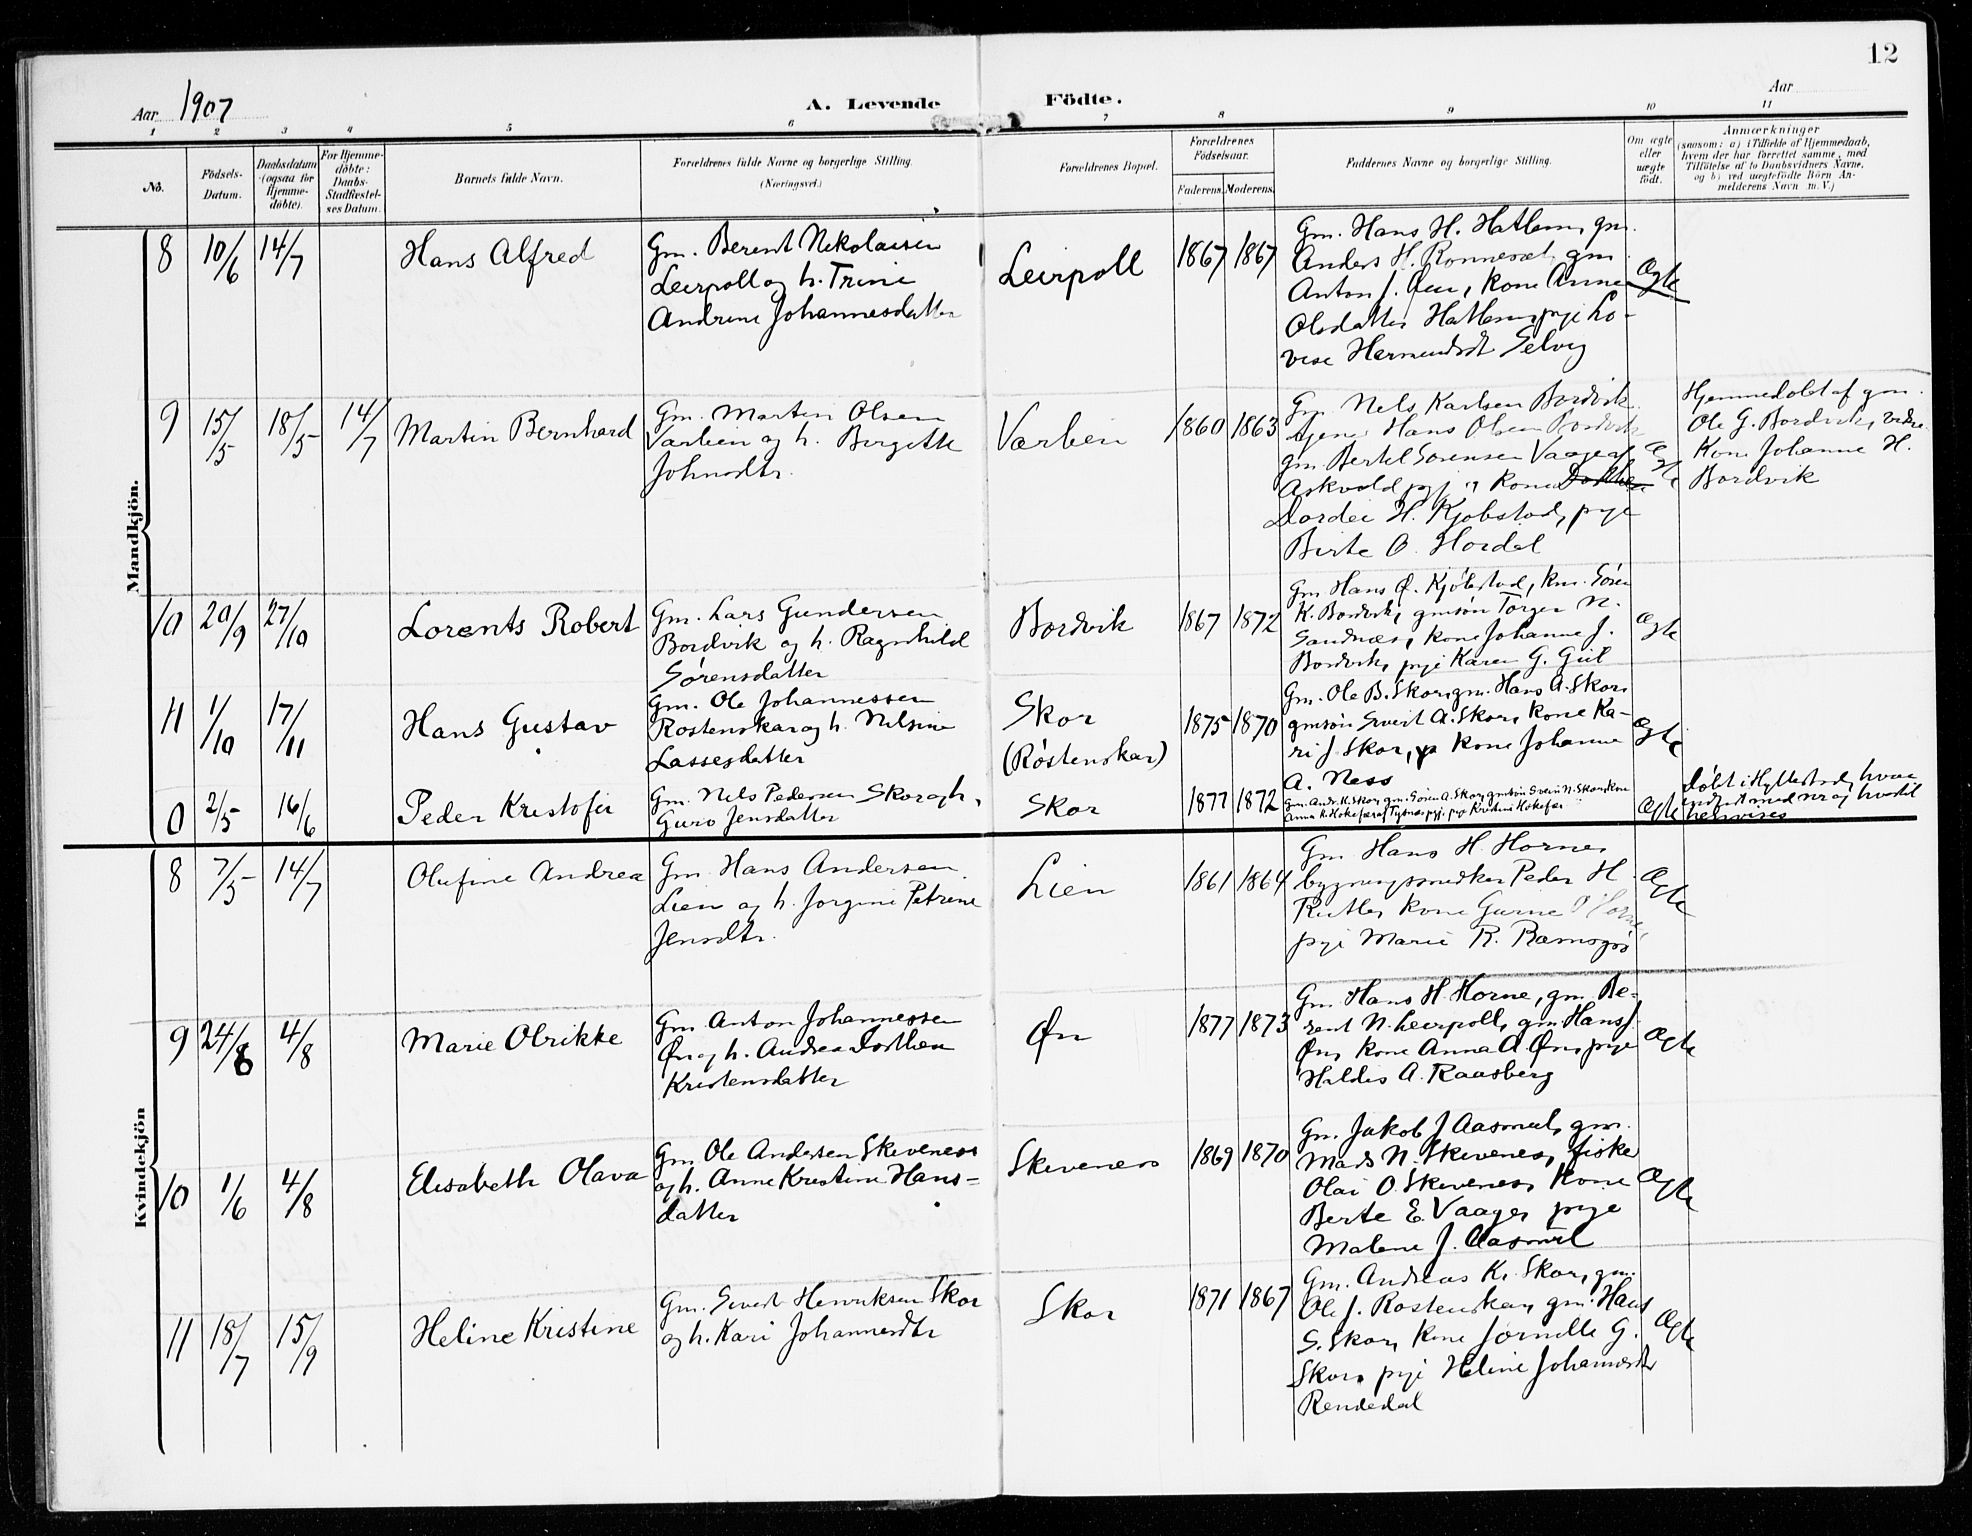 12
Aar 1907
A. Levende Födte.
Aar
1 2 3 4 5 6 7 8 9 10 11
No.
Födsels-
Datum.
Daabsdatum
(ogsaa for
Hjemme-
döbte).
For Hjemme-
döbte:
Daabs-
Stadfæstel-
ses Datum.
Barnets fulde Navn.
Forældrenes fulde Navne og borgerlige Stilling.
(Næringsvei.)
Forældrenes Bopæl.
Forældrenes
Födselsaar.
Faderens. Moderens.
Faddernes Navne og borgerlige Stilling.
Om ægte
eller
uægte
födt.
Anmærkninger
(saasom: a) i Tilfælde af Hjemmedaab,
hvem der har forrettet samme, med
Tilföielse af to Daabsvidners Navne,
og b) ved uægtefödte Börn An-
melderens Navn m. V.)
Mandkjön.
8 10/6 14/7
Hans Alfred
Gm. Berent Nikolaisen
Leirpoll og h. Trine
Andrine Johannesdatter
Leirpoll
1867 1867
Gm. Hans H. Hatlem, gm.
Anders H. Ronneset, gm
Anton J. Øen, kone Anne
Olsdatter Hatlem, pige Lo-
vise Hermundsdt Selvig
Ægte
9 15/5 18/5 14/7
Martin Bernhard
Gm. Martin Olsen
Værbein og h. Bergitte
Johnsdtr.
Værben
1860 1863
Gm. Nels Karlsen Bordvik
tjener Hans Olsen Bordvik
gm Bertel Sørensen Vaage af
Askvold pgj, kone
Dordei H. Kjobstad, pige
Birte O. Hordal
Ægte
Hjemmedøbt af gm.
Ole G. Bordvik, vidne
Kone Johanne H.
Bordvik
10 29/9 27/10
Lorents Robert
Gm. Lars Gundersen
Bordvik og h. Ragnhild
Sørensdatter
Bordvik
1867 1872
Gm Hans Ø. Kjøbstad, km. Søren
K. Bordvik, gmsøn Torger N.
Sandnæs, kone Johanne J.
Bordvik, pige Karen G. Giil
Ægte
11 1/10 17/11
Hans Gustav
Gm. Ole Johannessen
Rostenskar og h. Nilsine
Lassesdatter
Skor
(Røstenskar)
1875 1870
Gm. Ole B. Skor, gm. Hans A. Skor,
gmsøn Sivert A. Skor, kone Ka-
ri J. Skor, kone Johanne
A. Ness
Ægte
0 2/5 16/6
Peder Kristofer
Gm. Nels Pedersen Skor og h.
Guro Jensdatter
Skor
1877 1872
Gm. Andr. K. Skor, gm. Søren A. Skor, gmsøn Sverin N. Skor, kone
Anna R. Hokefær af pgj. pige Kristine Hokefær
Ægte
Døbt i Hyllestad, hvor
indført med nr og hvortil
henvises
Kvindekjön
8 7/5 14/7
Olufine Andrea
Gm Hans Andersen
Lien og h. Jorgine Petrine
Jensdtr.
Lien
1861 1864
Gm. Hans H. Horne,
bygningssnedker Peder H
Rutle, kone Gurine Horne,
pige Marie R. Ramsgrø
Ægte
9 24/6 4/8
Marie Olrikke
Gm Anton Johannessen
Øn og h. Andrea Dorthea
Kristensdatter
Øn
1877 1873
Gm. Hans H. Horne, gm. Be-
rent N. Leirpoll, gm Hans J.
Øn, kone Anna A. Øn, pige
Haldis A. Raasberg
Ægte
10 1/6 4/8
Elisabeth Olava
Gm. Ole Andersen Skiveness
og h. Anne Kristine Hans-
datter
Skeveness
1869 1870
Gm. Jakob J Aasmul, gm.
Mads N. Skivenes, fisker
Olai O. Skevenes, Kone
Berte E. Vaage, pige
Malene J. Aasmul
Ægte
11 18/7 15/9
Heline Kristine
Gm. Sivert Henriksen Skor
og h. Kari Johannesdtr
Skor
1871 1867
Gm. Andreas K. Skor, gm.
Ole J. Rostenskar, gm. Hans
S. Skor, kone Jornille G.
Skor, pige Heline Johannesdtr
Rendedal
Ægte